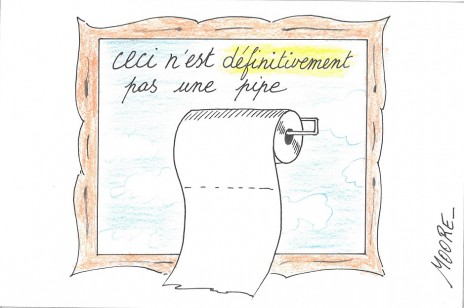 Ceci n'est définitivement
pas une pipe
MOORE_